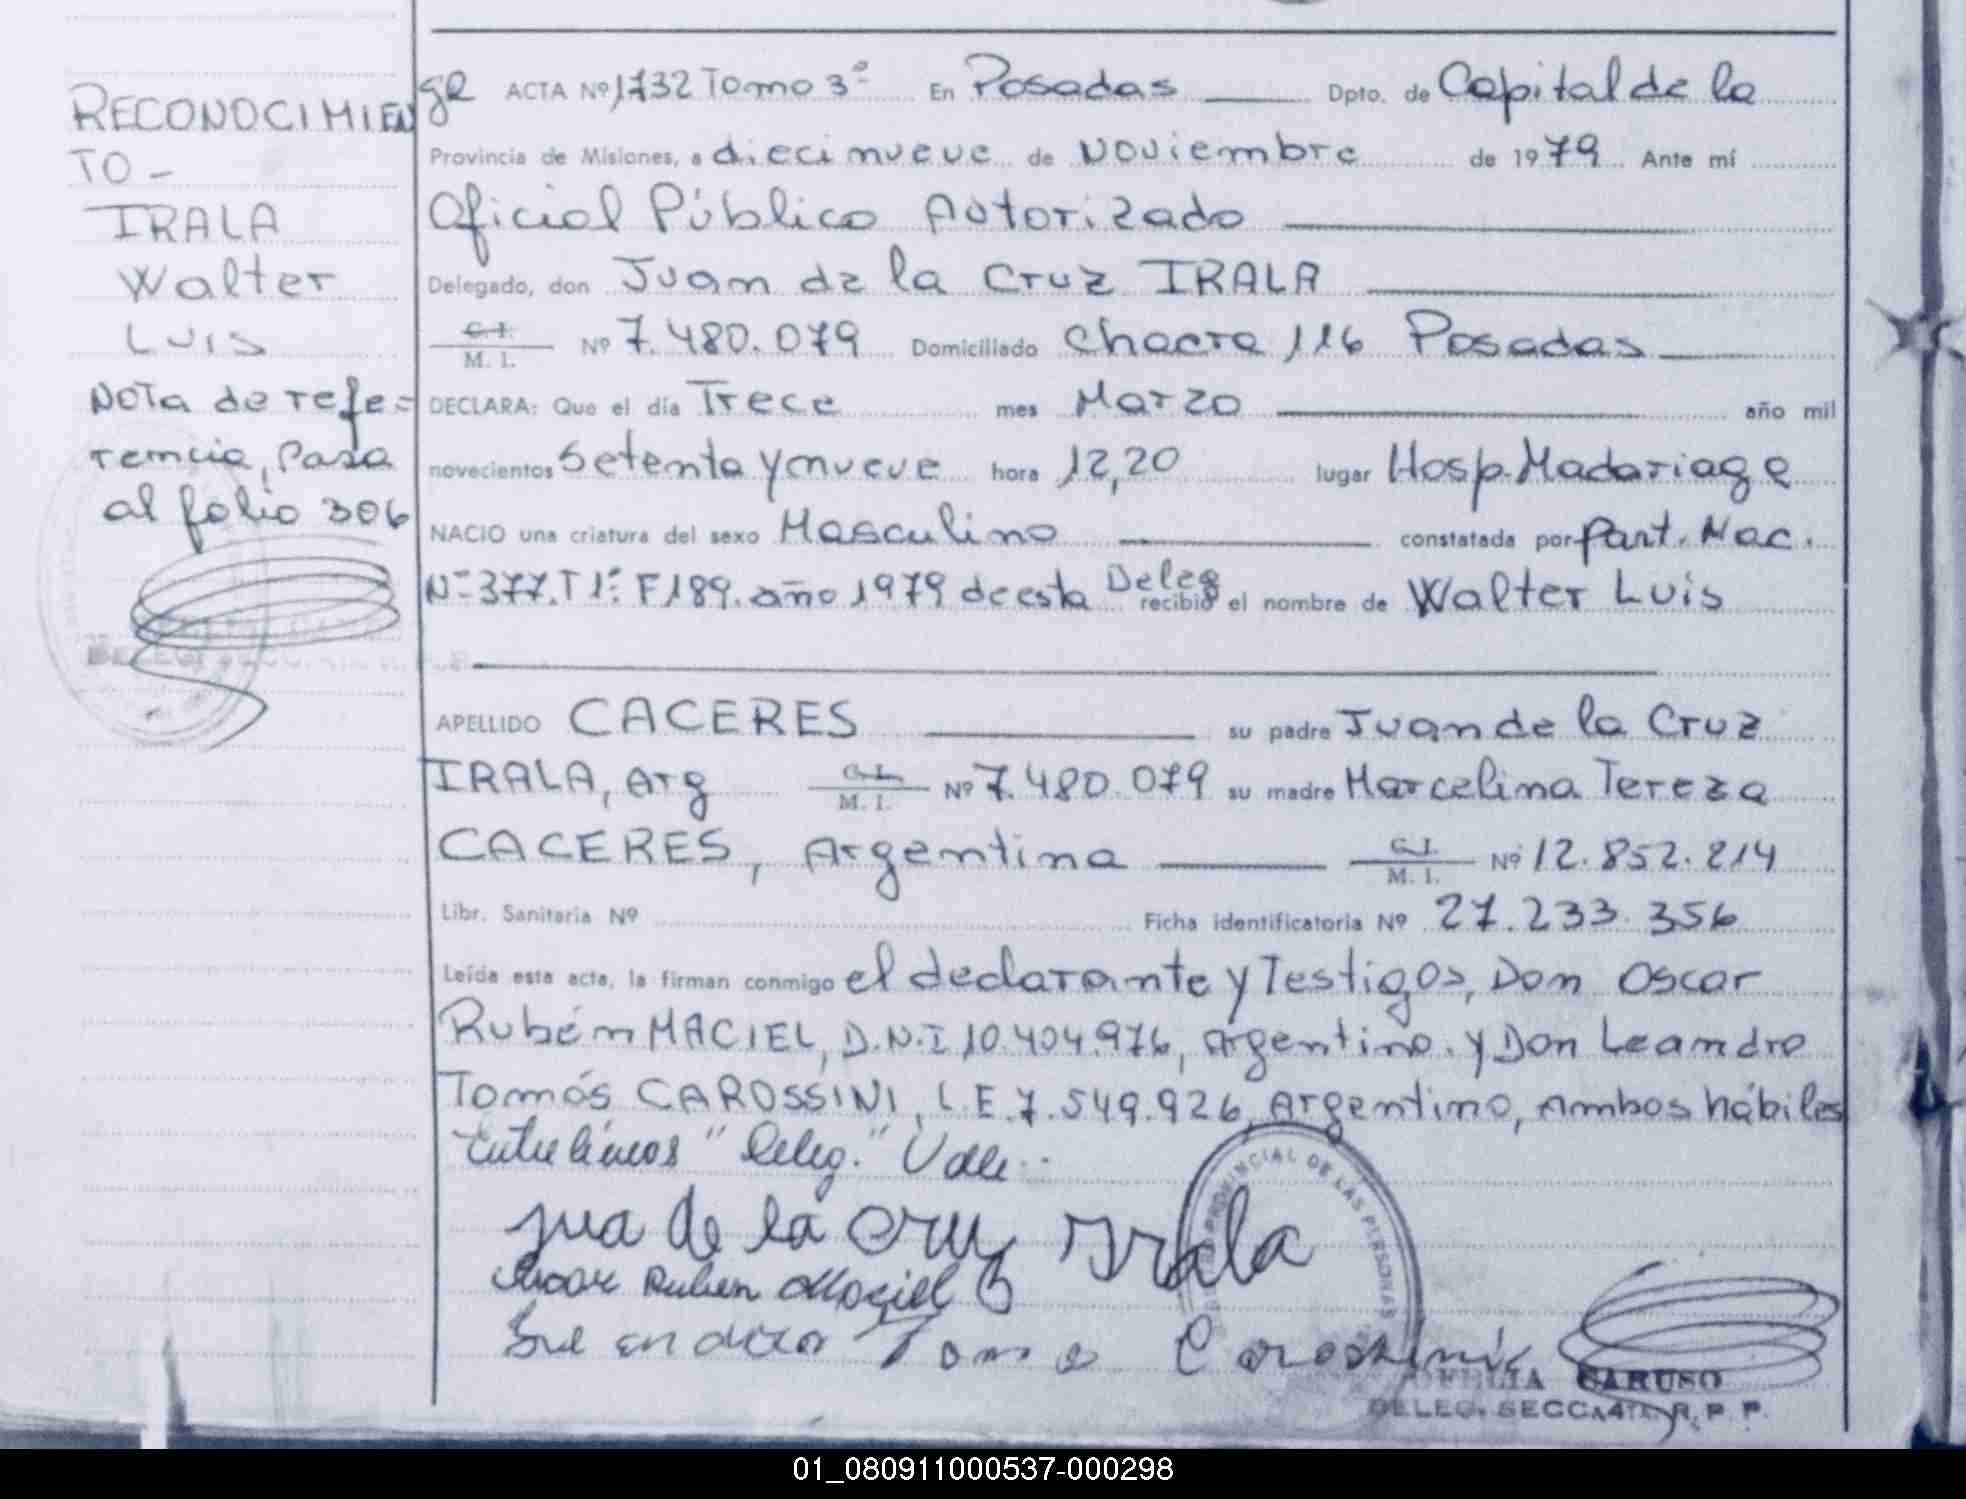 RECONOCIMIEN
TO -
IRALA
Walter
LUIS
Nota de refe=
rencia, Pasa
al folio 306
ACTA Nº 1732 Tomo 3º En Posadas Dpto. de Capital de la
Provincia de Misiones, a diecinueve de Noviembre de 1979 Ante mí
Oficial Público Autorizado
Delegado, don Juan de la Cruz IRALA
C.I.
M. I. Nº 7.480.079 Domiciliado Chacra 116 Posadas
DECLARA: Que el día Trece mes Marzo año mil
novecientos Setenta y nueve hora 12,20 lugar Hosp. Madariaga
NACIO una criatura del sexo Masculino constatada por Part. Nac.
Nº 377. T 1º. F 189. año 1979 de esta Deleg recibió el nombre de Walter Luis
APELLIDO CACERES su padre Juan de la Cruz
IRALA, Arg C.I. M. I. Nº 7.480.079 su madre Marcelina Tereza
CACERES, Argentina C.I. M. I. Nº 12.852.214
Libr. Sanitaria Nº Ficha identificatoria Nº 27.233.356
Leída esta acta, la firman conmigo el declarante y Testigos, Don Oscar
Rubén MACIEL, D.N.I 10.404.976, Argentino. y Don Leandro
Tomás CAROSSINI, L.E. 7.549.926, Argentino, Ambos hábiles
Entre líneas "Deleg." Vale..
jua de la cruz Irala
Oscar Ruben Maciel
Tomas Carossini
PROVINCIAL DE LAS PERSONAS
OFELIA CARUSO
DELEG. SECC. 4ta R. P. P.
01_080911000537-000298